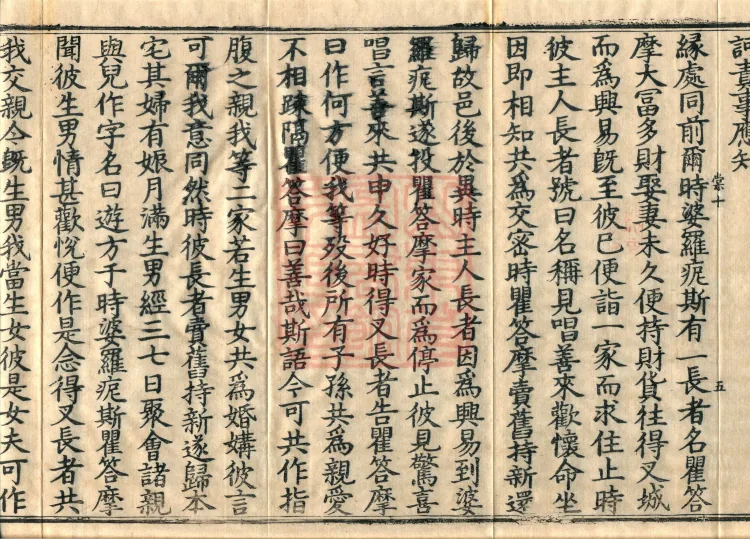 訶責事應知
棠十
五
緣處同前爾時婆羅痆斯有一長者名瞿答
摩大冨多財娶妻未久便持財貨往得叉城
而爲興易旣至彼已便詣一家而求住止時
彼主人長者號曰名稱見唱善來歡懷命坐
因即相知共爲交密時瞿答摩賣舊持新還
歸故邑後於異時主人長者因爲興易到婆
羅痆斯遂投瞿答摩家而爲停止彼見驚喜
唱言善來共申久好時得叉長者告瞿答摩
曰作何方便我等殁後所有子孫共爲親愛
不相踈隔瞿答摩曰善哉斯語今可共作指
腹之親我等二家若生男女共爲婚媾彼言
可爾我意同然時彼長者賣舊持新遂歸本
宅其婦有娠月滿生男經三七日聚會諸親
與兒作字名曰遊方于時婆羅痆斯瞿答摩
聞彼生男情甚歡悅便作是念得叉長者共
我交親今旣生男我當生女彼是女夫可作